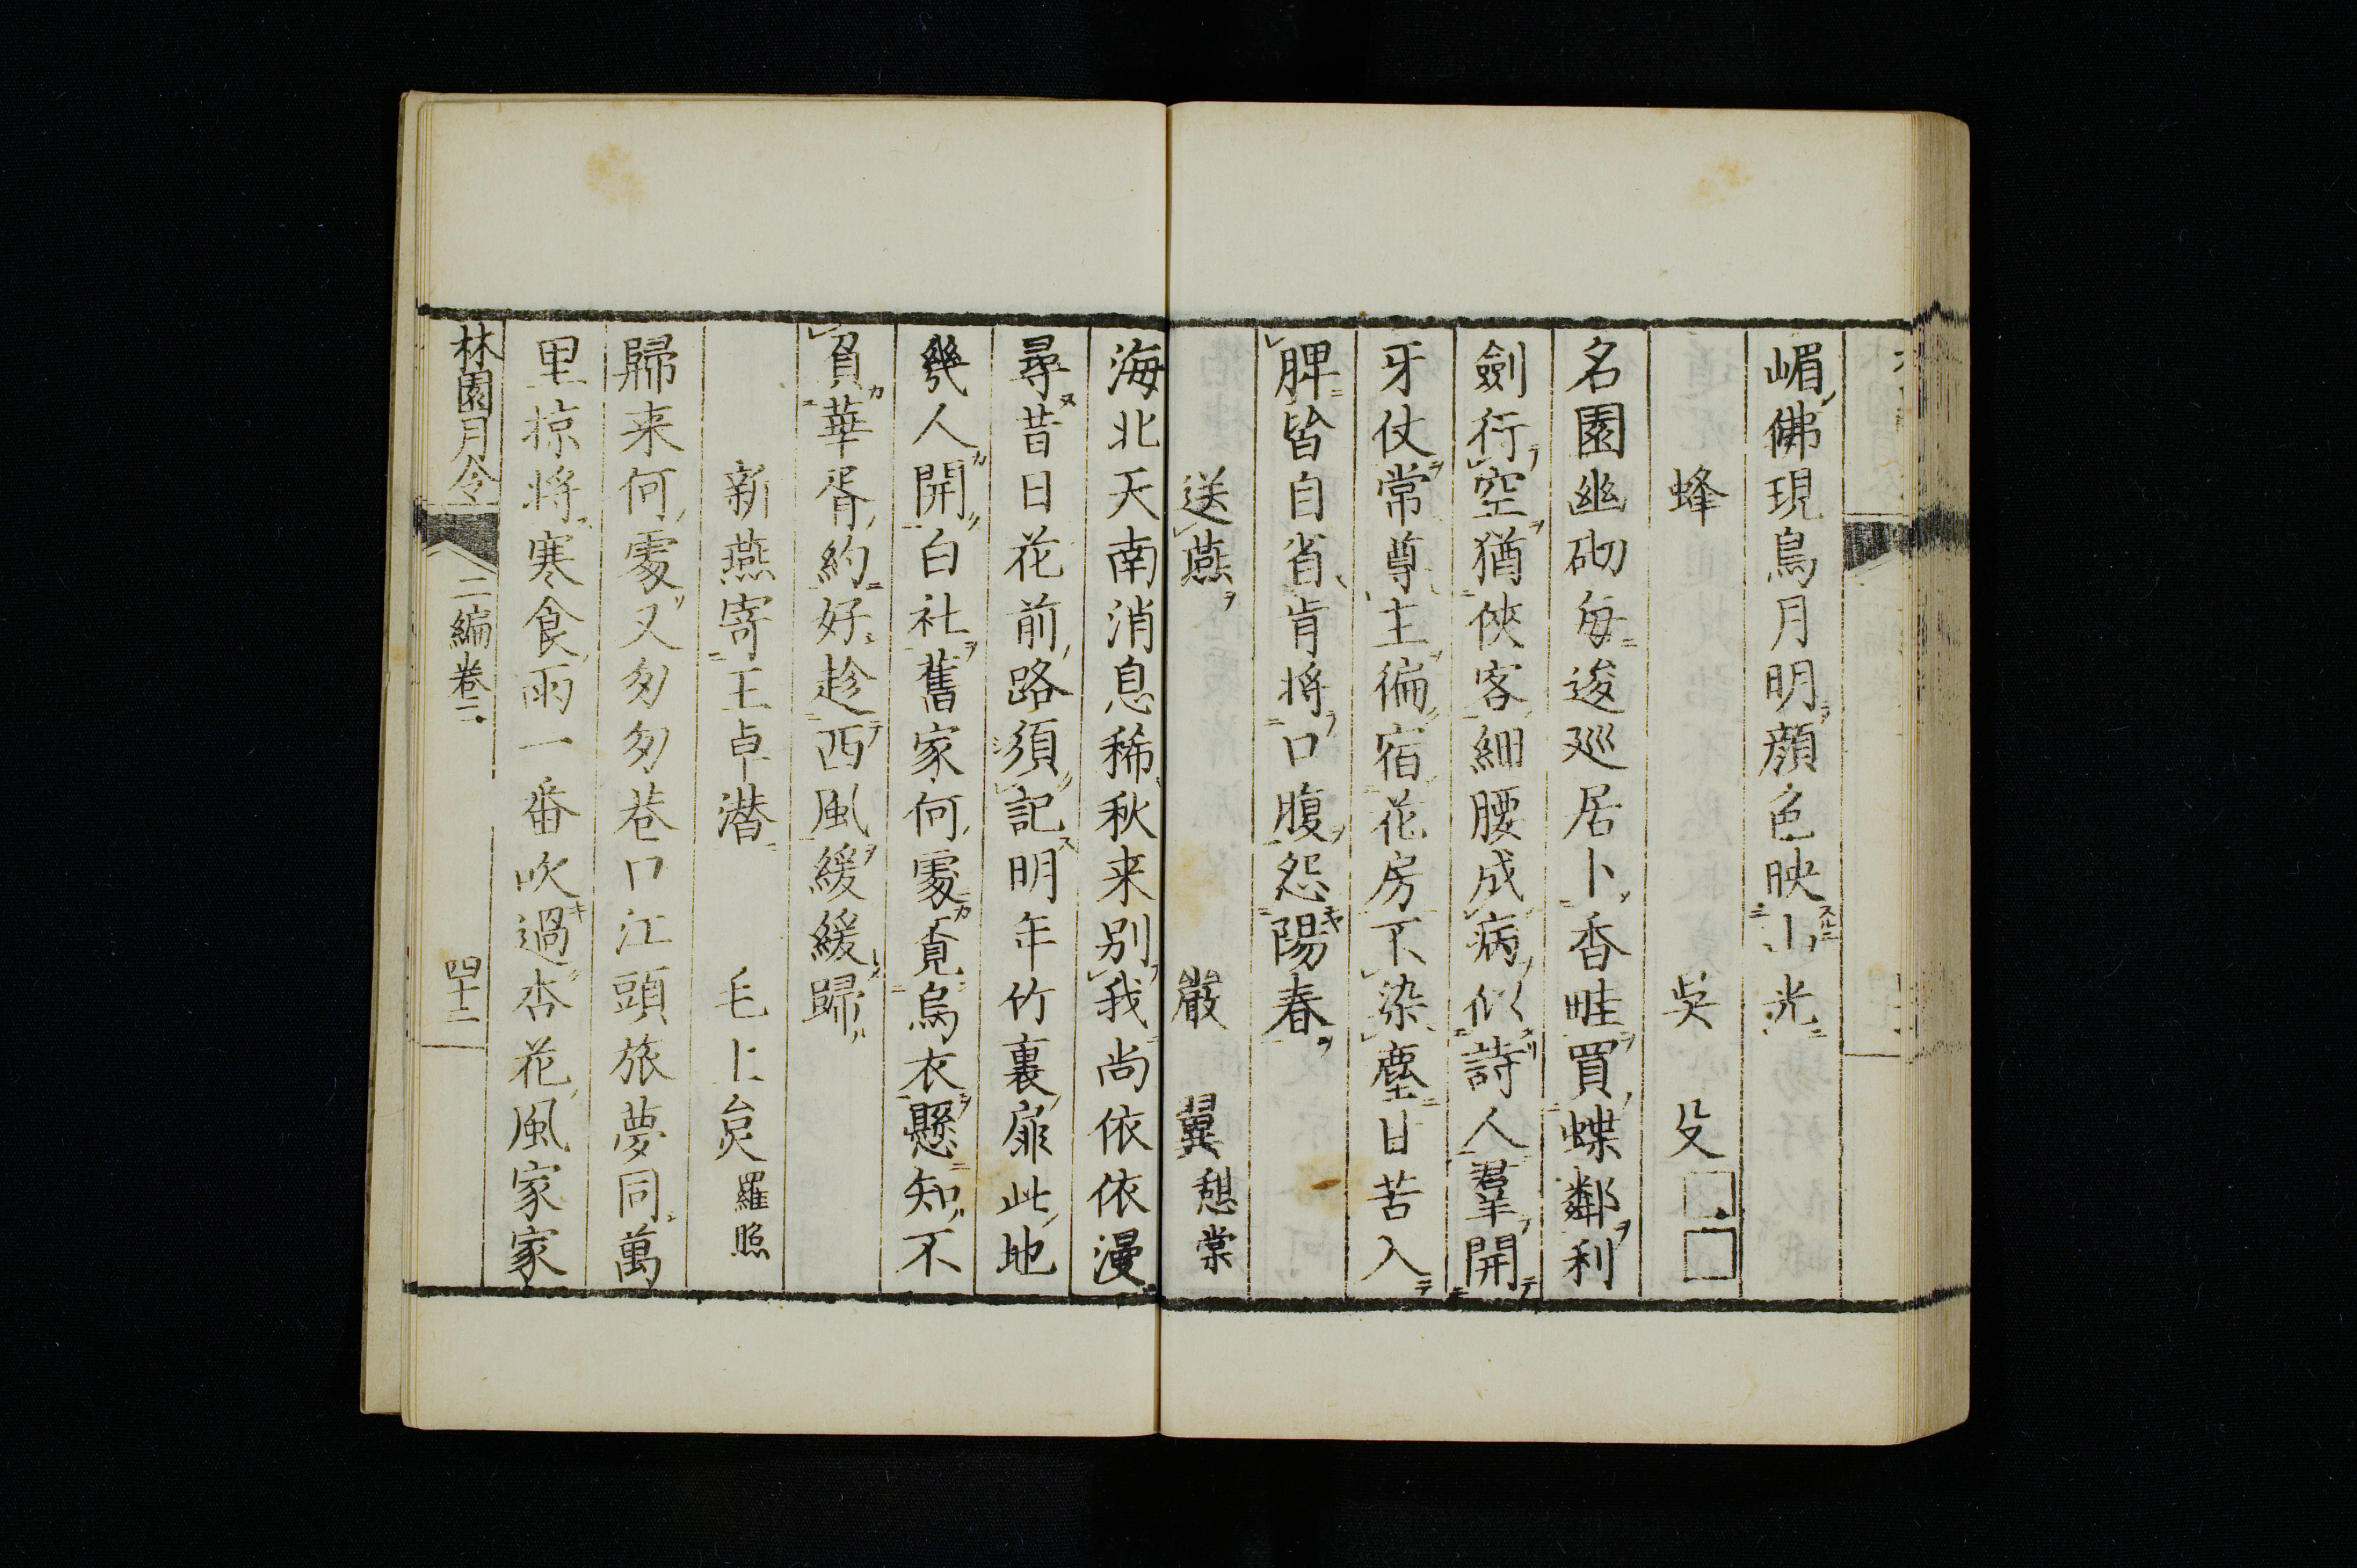 嵋佛現鳥月明顔色映山光
蜂　吳殳□□
名園幽砌每逡巡居卜香畦買蝶鄰利
劍行空猶俠客細腰成病似詩人羣開
牙仗常尊主徧宿花房不染塵甘苦入
脾皆自省肯將口腹怨陽春
送燕　嚴翼憩棠
海北天南消息稀秋来別我尚依依漫
尋昔日花前路須記明年竹裏扉此地
幾人開白社舊家何處覓烏衣懸知不
負華胥約好趁西風緩緩歸
新燕寄王卓潜　毛上炱羅照
歸来何處又匆匆巷口江頭旅夢同萬
里掠將寒食雨一番吹過杏花風家家
林園月令　二編卷二　四十二